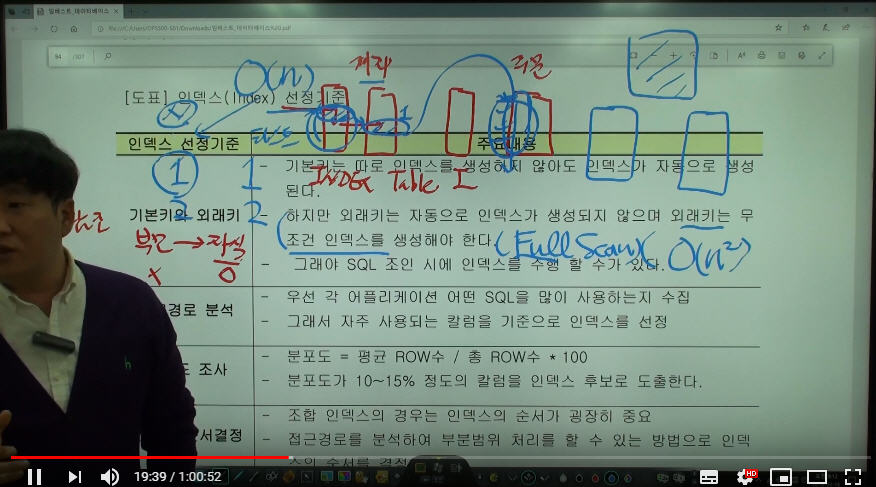 임베스트_데이터베이스
file:///C:/Users/OPS500-S01/Downloads/임베스트_데이터베이스%20.pdf
94 /307
[도표] 인덱스(Index) 선정기준
O(n)
인덱스 선정기준 주요내용
- 기본키는 따로 인덱스를 생성하지 않아도 인덱스가 자동으로 생성
된다.
1 1
INDEX Table I
기본키와 외래키
2 2
- 하지만 외래키는 자동으로 인덱스가 생성되지 않으며 외래키는 무
조건 인덱스를 생성해야 한다.
(Full Scan)
O(n²)
부모 → 자식
x O
- 그래야 SQL 조인 시에 인덱스를 수행 할 수가 있다.
경로 분석
- 우선 각 어플리케이션 어떤 SQL을 많이 사용하는지 수집
- 그래서 자주 사용되는 칼럼을 기준으로 인덱스를 선정
조사
- 분포도 = 평균 ROW수 / 총 ROW수 * 100
- 분포도가 10~15% 정도의 칼럼을 인덱스 후보로 도출한다.
서결정
- 조합 인덱스의 경우는 인덱스의 순서가 굉장히 중요
- 접근경로를 분석하여 부분범위 처리를 할 수 있는 방법으로 인덱
스의 순서를 결정
19:39 / 1:00:52
HD